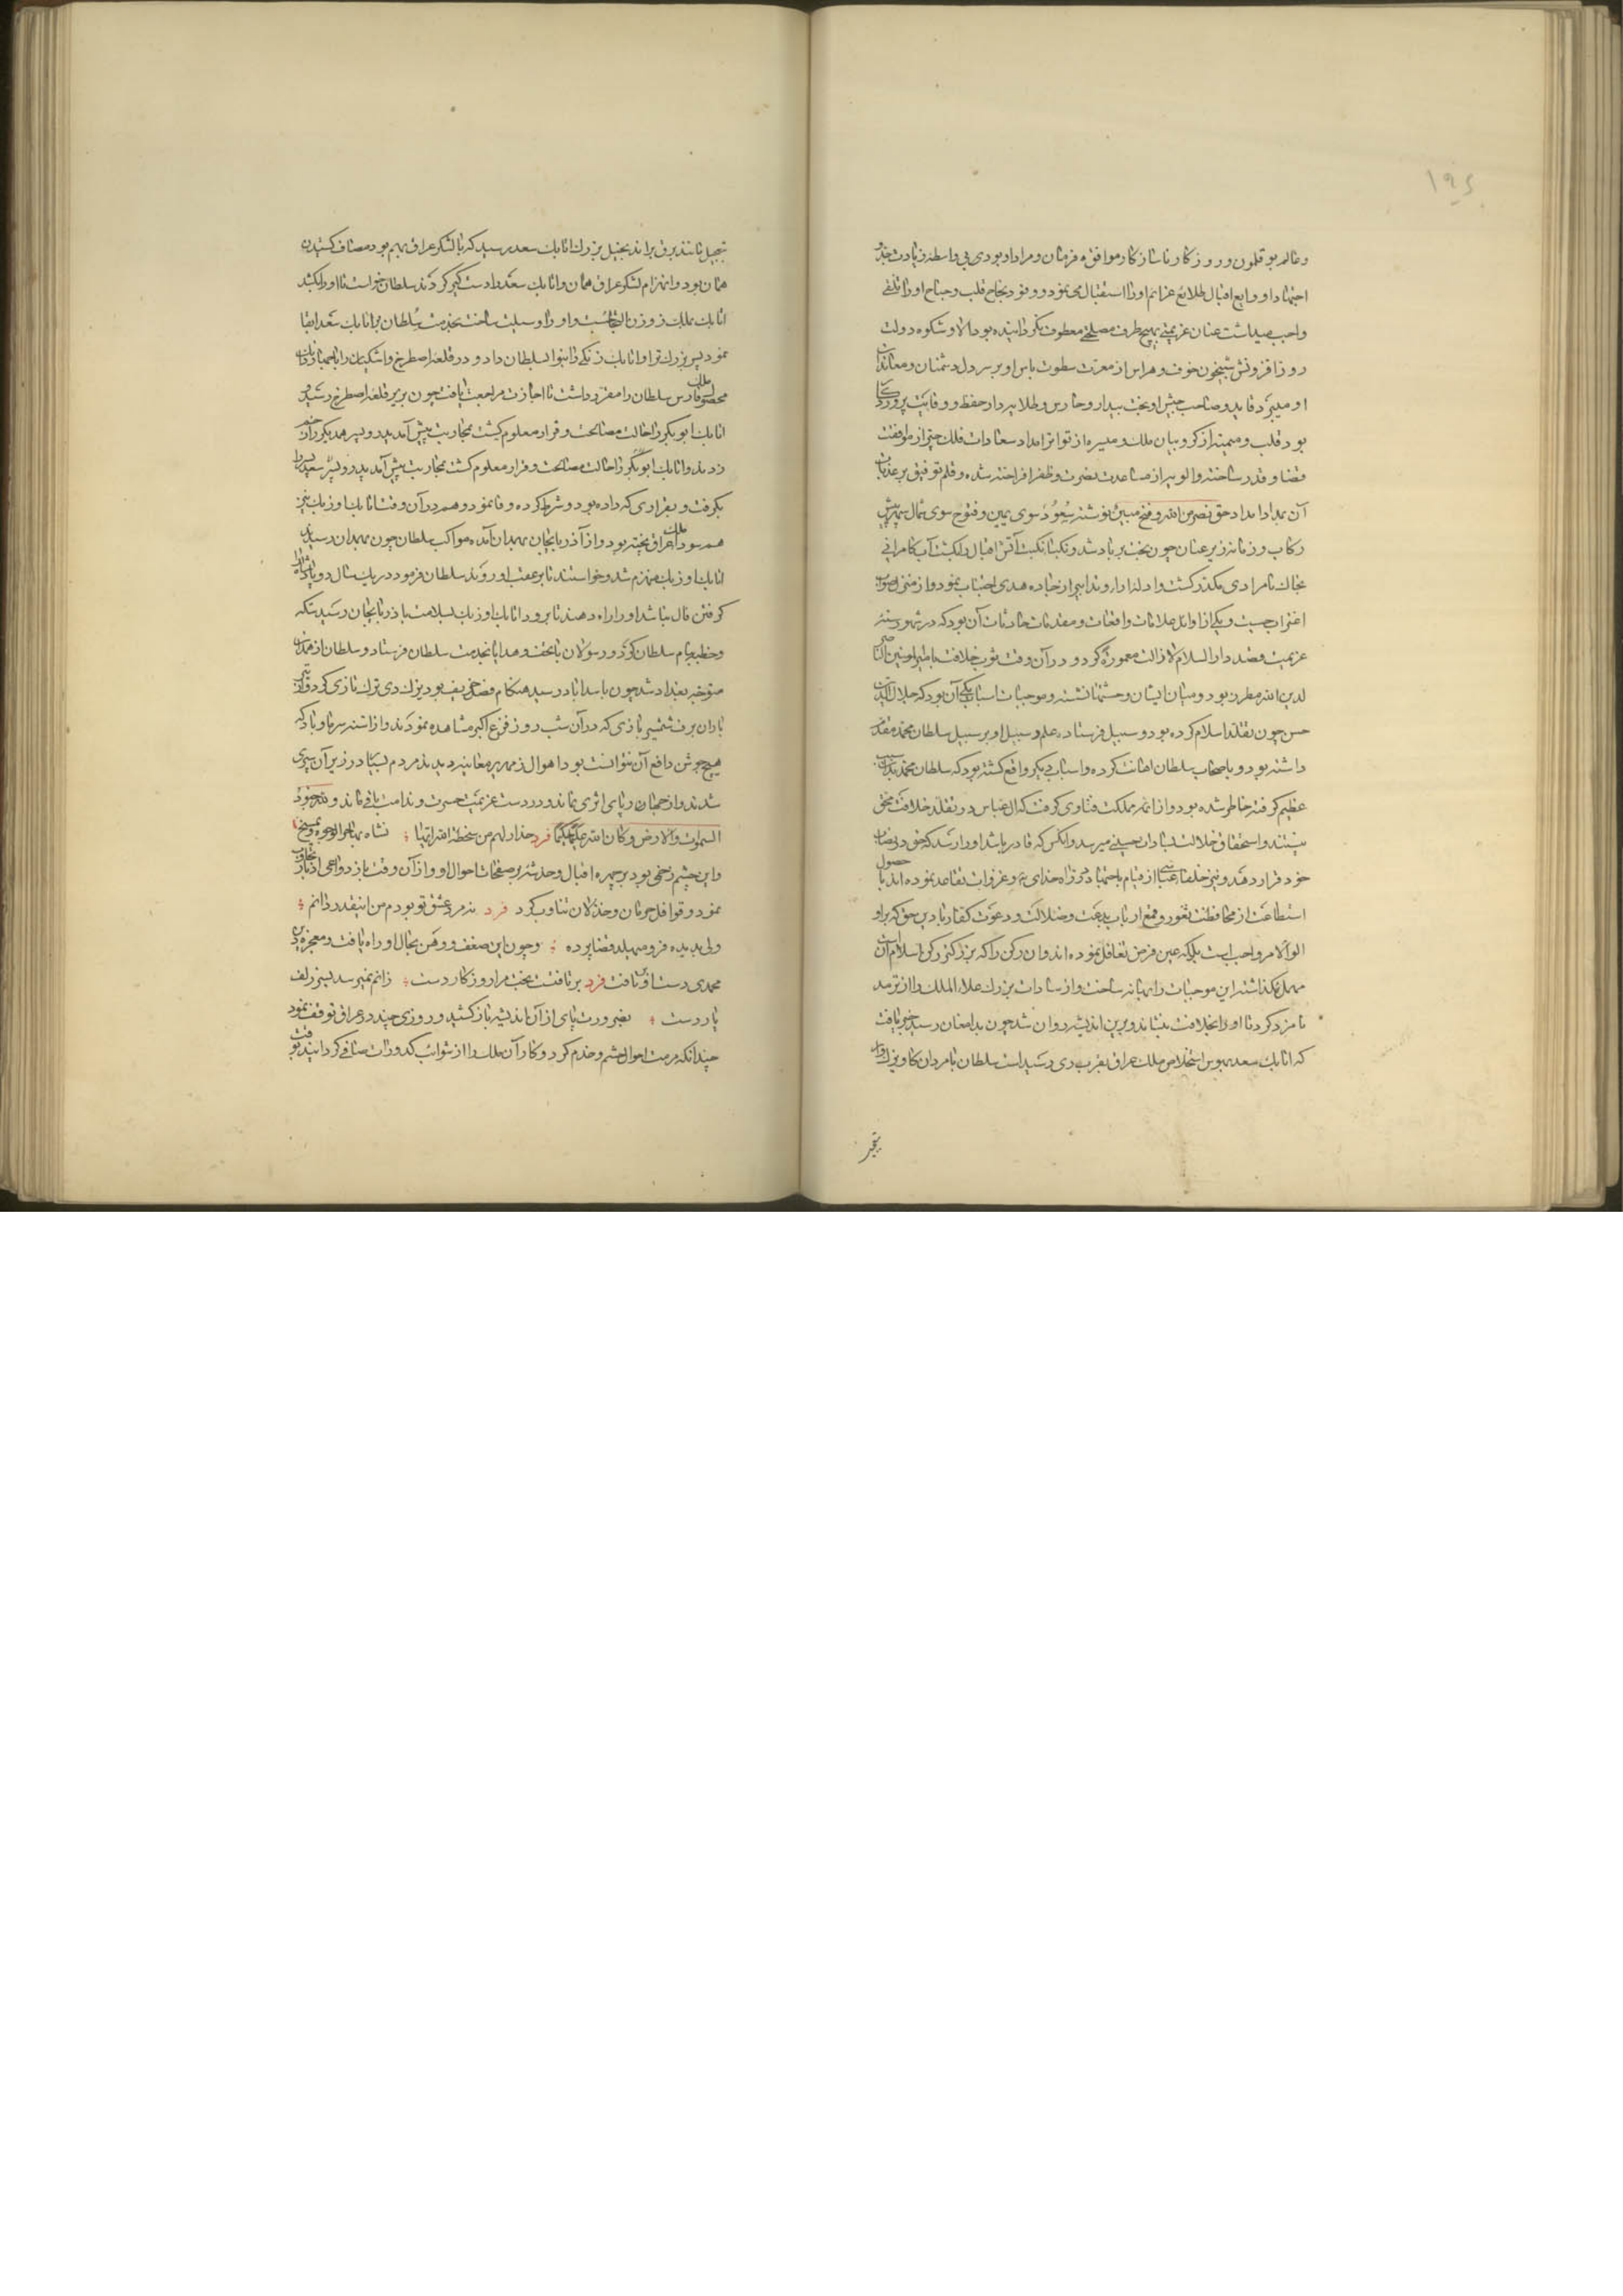 ۱۹۶
وعالم بوقلمون و روزگار ناسازگار موافق فرمان و مراد او بودی بی واسطه زیادت جد و
اجتهاد او وایع اقبال طلایع عزایم او را استقبال می نمود و وفود نجاح قلب و جناح او را تلقی
واجب میداشت عنان عزیمتی بهیچ طرف مصلحتی معطوف نگردانیده بود الا و شکوه دولت
روز افزونش شبیخون خوف و هراس از معرت سطوت باس او بر سر دل دشمنان و معاندان
او میبرد قاید و صاحب جیش او بخت بیدار و حارس و طلایه دار حفظ و وقایت پروردگار
بود قلب و میمنه از کروبیان ملک و میسره از تواتر امداد سعادات فلک چتر از موافقت
قضا و قدر ساخته والویه از مساعدت نصرت و ظفر افراخته شده و قلم توفیق بر عذبات
آن بمداد امداد حق نصر من الله و فتح مبین نوشته سعود سوی یمین و فتوح سوی شمال سپهر پیش
رکاب و زمانه زیر عنان چون بخت بر باد شد و نکباء نکبت آتش اقبال را بکشت آب کامرانی
بخاک نامرادی مکدر گشت و ادله ادا و تدابیر از جاده هدی اجتناب نمود و از منهج صواب
اغتراب جست و یکی از اوایل علامات واقعات و مقدمات حادثات آن بود که در شهور سنه
عزیمت قصد دار السلام لازالت معمورة کرد و در آن وقت ثوب خلافت بامیر المومنین الناصر
لدین الله مطرز بود و میان ایشان وحشتها نشسته و موجبات اسباب یکی آن بود که جلال الدین
حسن چون تقلد اسلام کرده بود و سبیل فرستاده علم و سبیل او بر سبیل سلطان محمد مقدم
داشته بود و باصحاب سلطان اهانت کرده و اسباب دیگر واقع گشته بود که سلطان محمد بدان سبب
عظیم کوفته خاطر شده بود و از ائمه مملکت فتاوی گرفت که آل عباس در تقلد خلافت محق
نیستند و استحقاق خلافت بسادات حسینی میرسد و آنکس که قادر باشد او را رسد که حق در نصاب
خود قرار دهد و نیز خلفاء عباسی از قیام باجتهاد در راه خدای عز و غزوات تقاعد نموده اند با حصول
استطاعت از محافظت ثغور و قمع ارباب بدعت و ضلالت و دعوت کفار با دین حق که بر او
لو الامر واجب است بلکه عین فرض تغافل نموده اند و آن رکن را که بزرگتر رکن اسلام آن است
مهمل گذاشته این موجبات را بهانه ساخت و از سادات بزرگ علاء الملک را از ترمد
نامزد کرد تا او را بخلافت بنشاند و برین اندیشه روان شد چون بدامغان رسید خبر یافت
که اتابک سعد بهوس استخلاص ملک عراق بقرب ری رسیده است سلطان با مردان کار
بتعجیل مانند برق براند بخیل بزرگ اتابک سعد رسید که با لشکر عراق بهم بود مصاف کشیدن
همان بود و انهزام لشکر عراق همان و اتابک سعد را دستگیر کردند سلطان خواست تا او را بکشد
اتابک بملک زوزن التجا جست و او را وسیلت ساخت بخدمت سلطان بر اتابک سعد ابقا
نمود پسر بزرگتر او اتابک زنگی را بنوا بسلطان داد و دو قلعه اصطرخ و اشکنان را با چهار دانگ
محصول ملک فارس سلطان را مقرر داشت تا اجازت مراجعت یافت چون بزیر قلعه اصطرخ رسید
اتابک ابو بکر را حالت مصالحت و قرار معلوم گشت بمحاربت پیش آمد پدر و پسر همدیگر را زخم
زدند و اتابک ابو بکر را حالت مصالحت و قرار معلوم گشت بمحاربت پیش آمد پدر و پسر سعد پسر را
بگرفت و بقراری که داده بود و شرط کرده وفا نمود و هم در آن وقت اتابک اوزبک نیز
هم سودای ملک عراق پخته بود و از آذربایجان بهمدان آمده مواکب سلطان چون بهمدان رسید
اتابک اوزبک منهزم شد و خواستند تا بر عقب او روند سلطان فرمود در یک سال دو پادشاه را
گرفتن فال نباشد او را راه دهند تا برود اتابک اوزبک بسلامت باذربایجان رسید سکه
و خطبه بنام سلطان کرد و رسولان با تحف و هدایا بخدمت سلطان فرستاد و سلطان از همدان
متوجه بغداد شد چون باسداباد رسید هنگام فصل خریف بود یزک دی ترک تازی کرد و از
باران برف شمشیر بازی که در آن شب روز فزع اکبر مشاهده نمودند و از اسنه سرما و باد که
هیچ جوشن دافع آن نتوانست بود اهوال زمهریر معاینه دیدند مردم بسیار در زیر آن سپری
شدند و از چهارپای اثری نماند و در دست عزیمت حسرت و ندامت باقی ماند و لله جنود
السموات والارض و کان الله علیما حکیما فرد حذار لهم من سخطة الله انها
و این چشم زخمی بود بر چهره اقبال و خدشه بر صفحات احوال او و از آن وقت باز دواعی ادبار
نمود و قوافل حرمان و خذلان تناوب کرد فرد نه مرد عشق تو بودم من اینقدر دانم
ولی بدیده فرو میهلد قضا پرده و چون این ضعف و وهن بحال او راه یافت و معجزه دین
محمدی دست او بتافت فرد بر تافتست بخت مرا روزگار دست زانم نمیرسد بسر زلف
یار دست بضرورت پای از آن اندیشه باز کشید و روزی چند در عراق توقف نمود
چندانکه مرمت احوال حشم و خدم کرد و کار آن ملک را از شوایب کدورات صافی گردانید